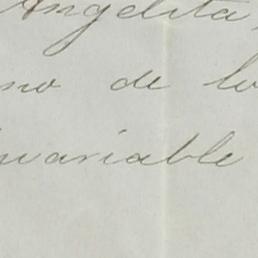 Angelita,
de
invariable